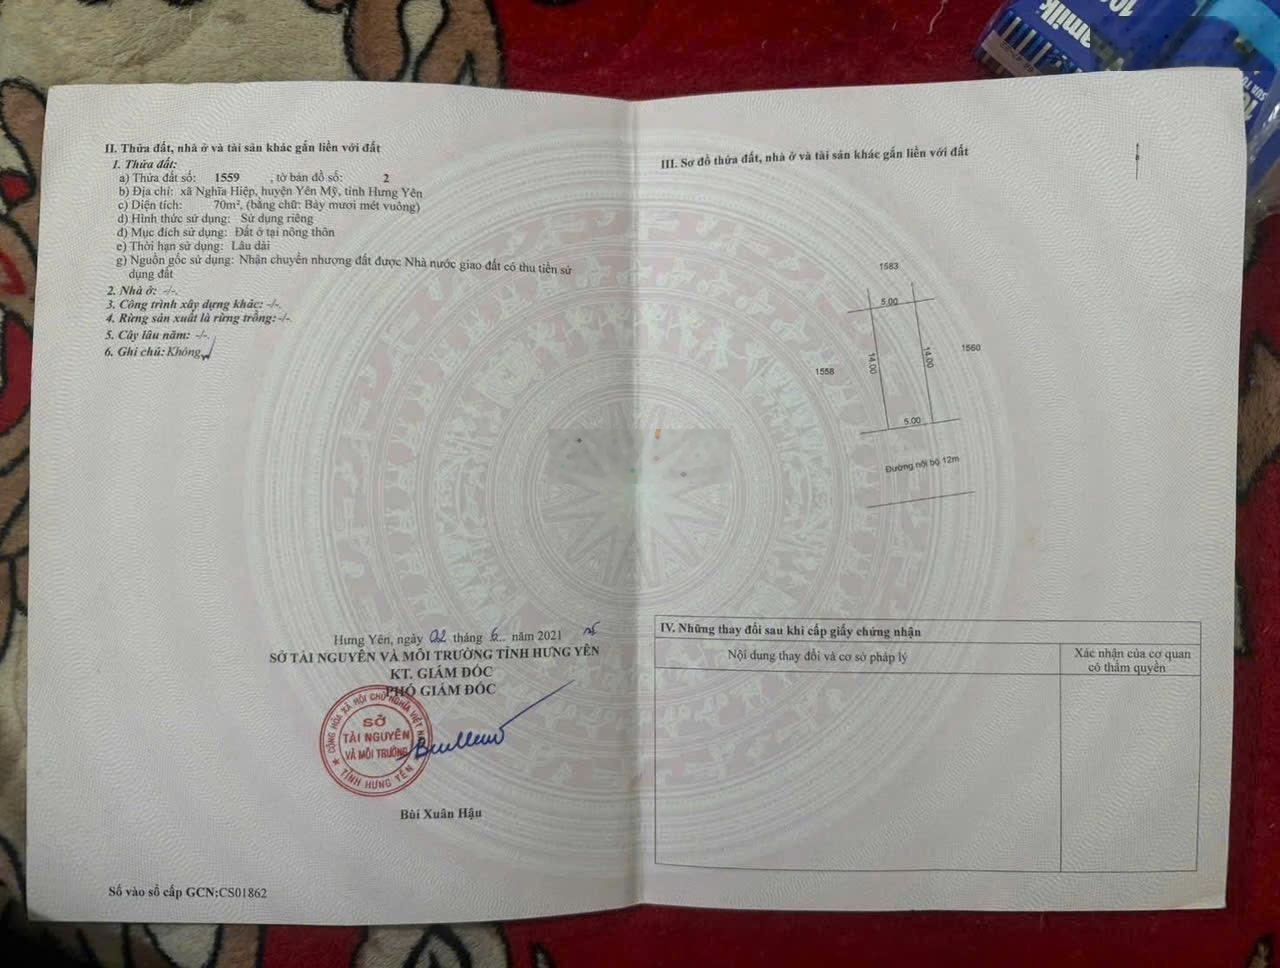 II. Thửa đất, nhà ở và tài sản khác gắn liền với đất
1. Thửa đất:
a) Thửa đất số: 1559 , tờ bản đồ số: 2
b) Địa chỉ: xã Nghĩa Hiệp, huyện Yên Mỹ, tỉnh Hưng Yên
c) Diện tích: 70m², (bằng chữ: Bảy mươi mét vuông)
d) Hình thức sử dụng: Sử dụng riêng
đ) Mục đích sử dụng: Đất ở tại nông thôn
e) Thời hạn sử dụng: Lâu dài
g) Nguồn gốc sử dụng: Nhận chuyển nhượng đất được Nhà nước giao đất có thu tiền sử
dụng đất
2. Nhà ở: -/-.
3. Công trình xây dựng khác: -/-.
4. Rừng sản xuất là rừng trồng: -/-.
5. Cây lâu năm: -/-.
6. Ghi chú: Không
Hưng Yên, ngày 02 tháng 6.. năm 2021
SỞ TÀI NGUYÊN VÀ MÔI TRƯỜNG TỈNH HƯNG YÊN
KT. GIÁM ĐỐC
PHÓ GIÁM ĐỐC
CỘNG HÒA XÃ HỘI CHỦ NGHĨA VIỆT NAM
SỞ
TÀI NGUYÊN
VÀ MÔI TRƯỜNG
TỈNH HƯNG YÊN
Bùi Xuân Hậu
Số vào sổ cấp GCN:CS01862
III. Sơ đồ thửa đất, nhà ở và tài sản khác gắn liền với đất
1583
5.00
1558
14.00
14.00
1560
5.00
Đường nội bộ 12m
IV. Những thay đổi sau khi cấp giấy chứng nhận
Nội dung thay đổi và cơ sở pháp lý
Xác nhận của cơ quan
có thẩm quyền
amilk
100